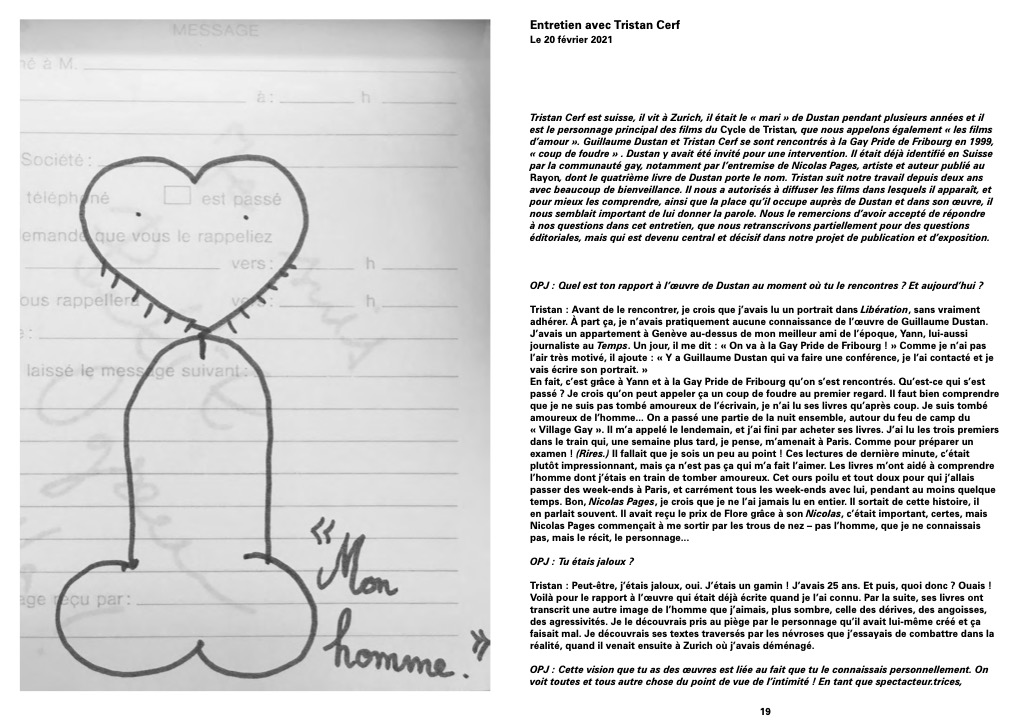 MESSAGE
né à M.
à: h
Société :
téléphoné est passé
emande que vous le rappeliez
vers: h
ous rappellera vers: h
e :
laissé le message suivant:
« Mon
age reçu par:
homme. »
Entretien avec Tristan Cerf
Le 20 février 2021
Tristan Cerf est suisse, il vit à Zurich, il était le « mari » de Dustan pendant plusieurs années et il
est le personnage principal des films du Cycle de Tristan, que nous appelons également « les films
d’amour ». Guillaume Dustan et Tristan Cerf se sont rencontrés à la Gay Pride de Fribourg en 1999,
« coup de foudre » . Dustan y avait été invité pour une intervention. Il était déjà identifié en Suisse
par la communauté gay, notamment par l’entremise de Nicolas Pages, artiste et auteur publié au
Rayon, dont le quatrième livre de Dustan porte le nom. Tristan suit notre travail depuis deux ans
avec beaucoup de bienveillance. Il nous a autorisés à diffuser les films dans lesquels il apparaît, et
pour mieux les comprendre, ainsi que la place qu’il occupe auprès de Dustan et dans son œuvre, il
nous semblait important de lui donner la parole. Nous le remercions d’avoir accepté de répondre
à nos questions dans cet entretien, que nous retranscrivons partiellement pour des questions
éditoriales, mais qui est devenu central et décisif dans notre projet de publication et d’exposition.
OPJ : Quel est ton rapport à l’œuvre de Dustan au moment où tu le rencontres ? Et aujourd’hui ?
Tristan : Avant de le rencontrer, je crois que j’avais lu un portrait dans Libération, sans vraiment
adhérer. À part ça, je n’avais pratiquement aucune connaissance de l’œuvre de Guillaume Dustan.
J’avais un appartement à Genève au-dessus de mon meilleur ami de l’époque, Yann, lui-aussi
journaliste au Temps. Un jour, il me dit : « On va à la Gay Pride de Fribourg ! » Comme je n’ai pas
l’air très motivé, il ajoute : « Y a Guillaume Dustan qui va faire une conférence, je l’ai contacté et je
vais écrire son portrait. »
En fait, c’est grâce à Yann et à la Gay Pride de Fribourg qu’on s’est rencontrés. Qu’est-ce qui s’est
passé ? Je crois qu’on peut appeler ça un coup de foudre au premier regard. Il faut bien comprendre
que je ne suis pas tombé amoureux de l’écrivain, je n’ai lu ses livres qu’après coup. Je suis tombé
amoureux de l’homme... On a passé une partie de la nuit ensemble, autour du feu de camp du
« Village Gay ». Il m’a appelé le lendemain, et j’ai fini par acheter ses livres. J’ai lu les trois premiers
dans le train qui, une semaine plus tard, je pense, m’amenait à Paris. Comme pour préparer un
examen ! (Rires.) Il fallait que je sois un peu au point ! Ces lectures de dernière minute, c’était
plutôt impressionnant, mais ça n’est pas ça qui m’a fait l’aimer. Les livres m’ont aidé à comprendre
l’homme dont j’étais en train de tomber amoureux. Cet ours poilu et tout doux pour qui j’allais
passer des week-ends à Paris, et carrément tous les week-ends avec lui, pendant au moins quelque
temps. Bon, Nicolas Pages, je crois que je ne l’ai jamais lu en entier. Il sortait de cette histoire, il
en parlait souvent. Il avait reçu le prix de Flore grâce à son Nicolas, c’était important, certes, mais
Nicolas Pages commençait à me sortir par les trous de nez – pas l’homme, que je ne connaissais
pas, mais le récit, le personnage...
OPJ : Tu étais jaloux ?
Tristan : Peut-être, j’étais jaloux, oui. J’étais un gamin ! J’avais 25 ans. Et puis, quoi donc ? Ouais !
Voilà pour le rapport à l’œuvre qui était déjà écrite quand je l’ai connu. Par la suite, ses livres ont
transcrit une autre image de l’homme que j’aimais, plus sombre, celle des dérives, des angoisses,
des agressivités. Je le découvrais pris au piège par le personnage qu’il avait lui-même créé et ça
faisait mal. Je découvrais ses textes traversés par les névroses que j’essayais de combattre dans la
réalité, quand il venait ensuite à Zurich où j’avais déménagé.
OPJ : Cette vision que tu as des œuvres est liée au fait que tu le connaissais personnellement. On
voit toutes et tous autre chose du point de vue de l’intimité ! En tant que spectacteur.trices,
19